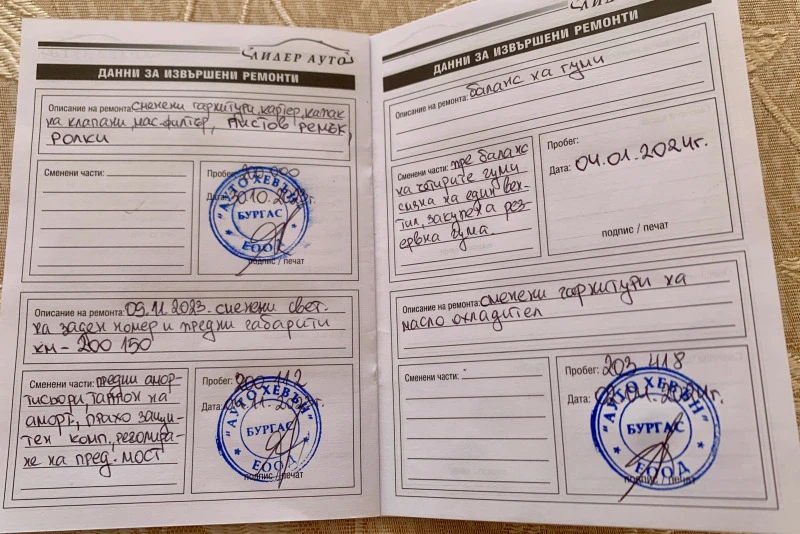 ЛИДЕР АУТО
ДАННИ ЗА ИЗВЪРШЕНИ РЕМОНТИ
Описание на ремонта: сменени гарнитури, картер, капак
на клапани, мас. филтър, пистов ремък,
ролки
Сменени части:
Пробег: 200.000
Дата: 30.10.
"АУТО ХЕВЪН"
БУРГАС
ЕООД
подпис / печат
Описание на ремонта: 09.11.2023. сменени свет.
на заден номер и предни габарити
км - 200 150
Сменени части: предни амор-
тисьори, тампон на
аморт., прахо защи-
тен комп., реголира-
не на пред. мост
Пробег: 200 112
Дата: 11.
"АУТО ХЕВЪН"
БУРГАС
ЕООД
подпис / печат
ЛИДЕР АУТО
ДАННИ ЗА ИЗВЪРШЕНИ РЕМОНТИ
Описание на ремонта: баланс на гуми
Сменени части: пре баланс
на четирите гуми
смяна на един вен-
тил, закупена рез-
ервна гума.
Пробег:
Дата: 04.01.2024г.
подпис / печат
Описание на ремонта: сменени гарнитури на
масло охладител
Сменени части:
Пробег: 203 418
Дата: 01.2024г.
"АУТО ХЕВЪН"
БУРГАС
ЕООД
подпис / печат